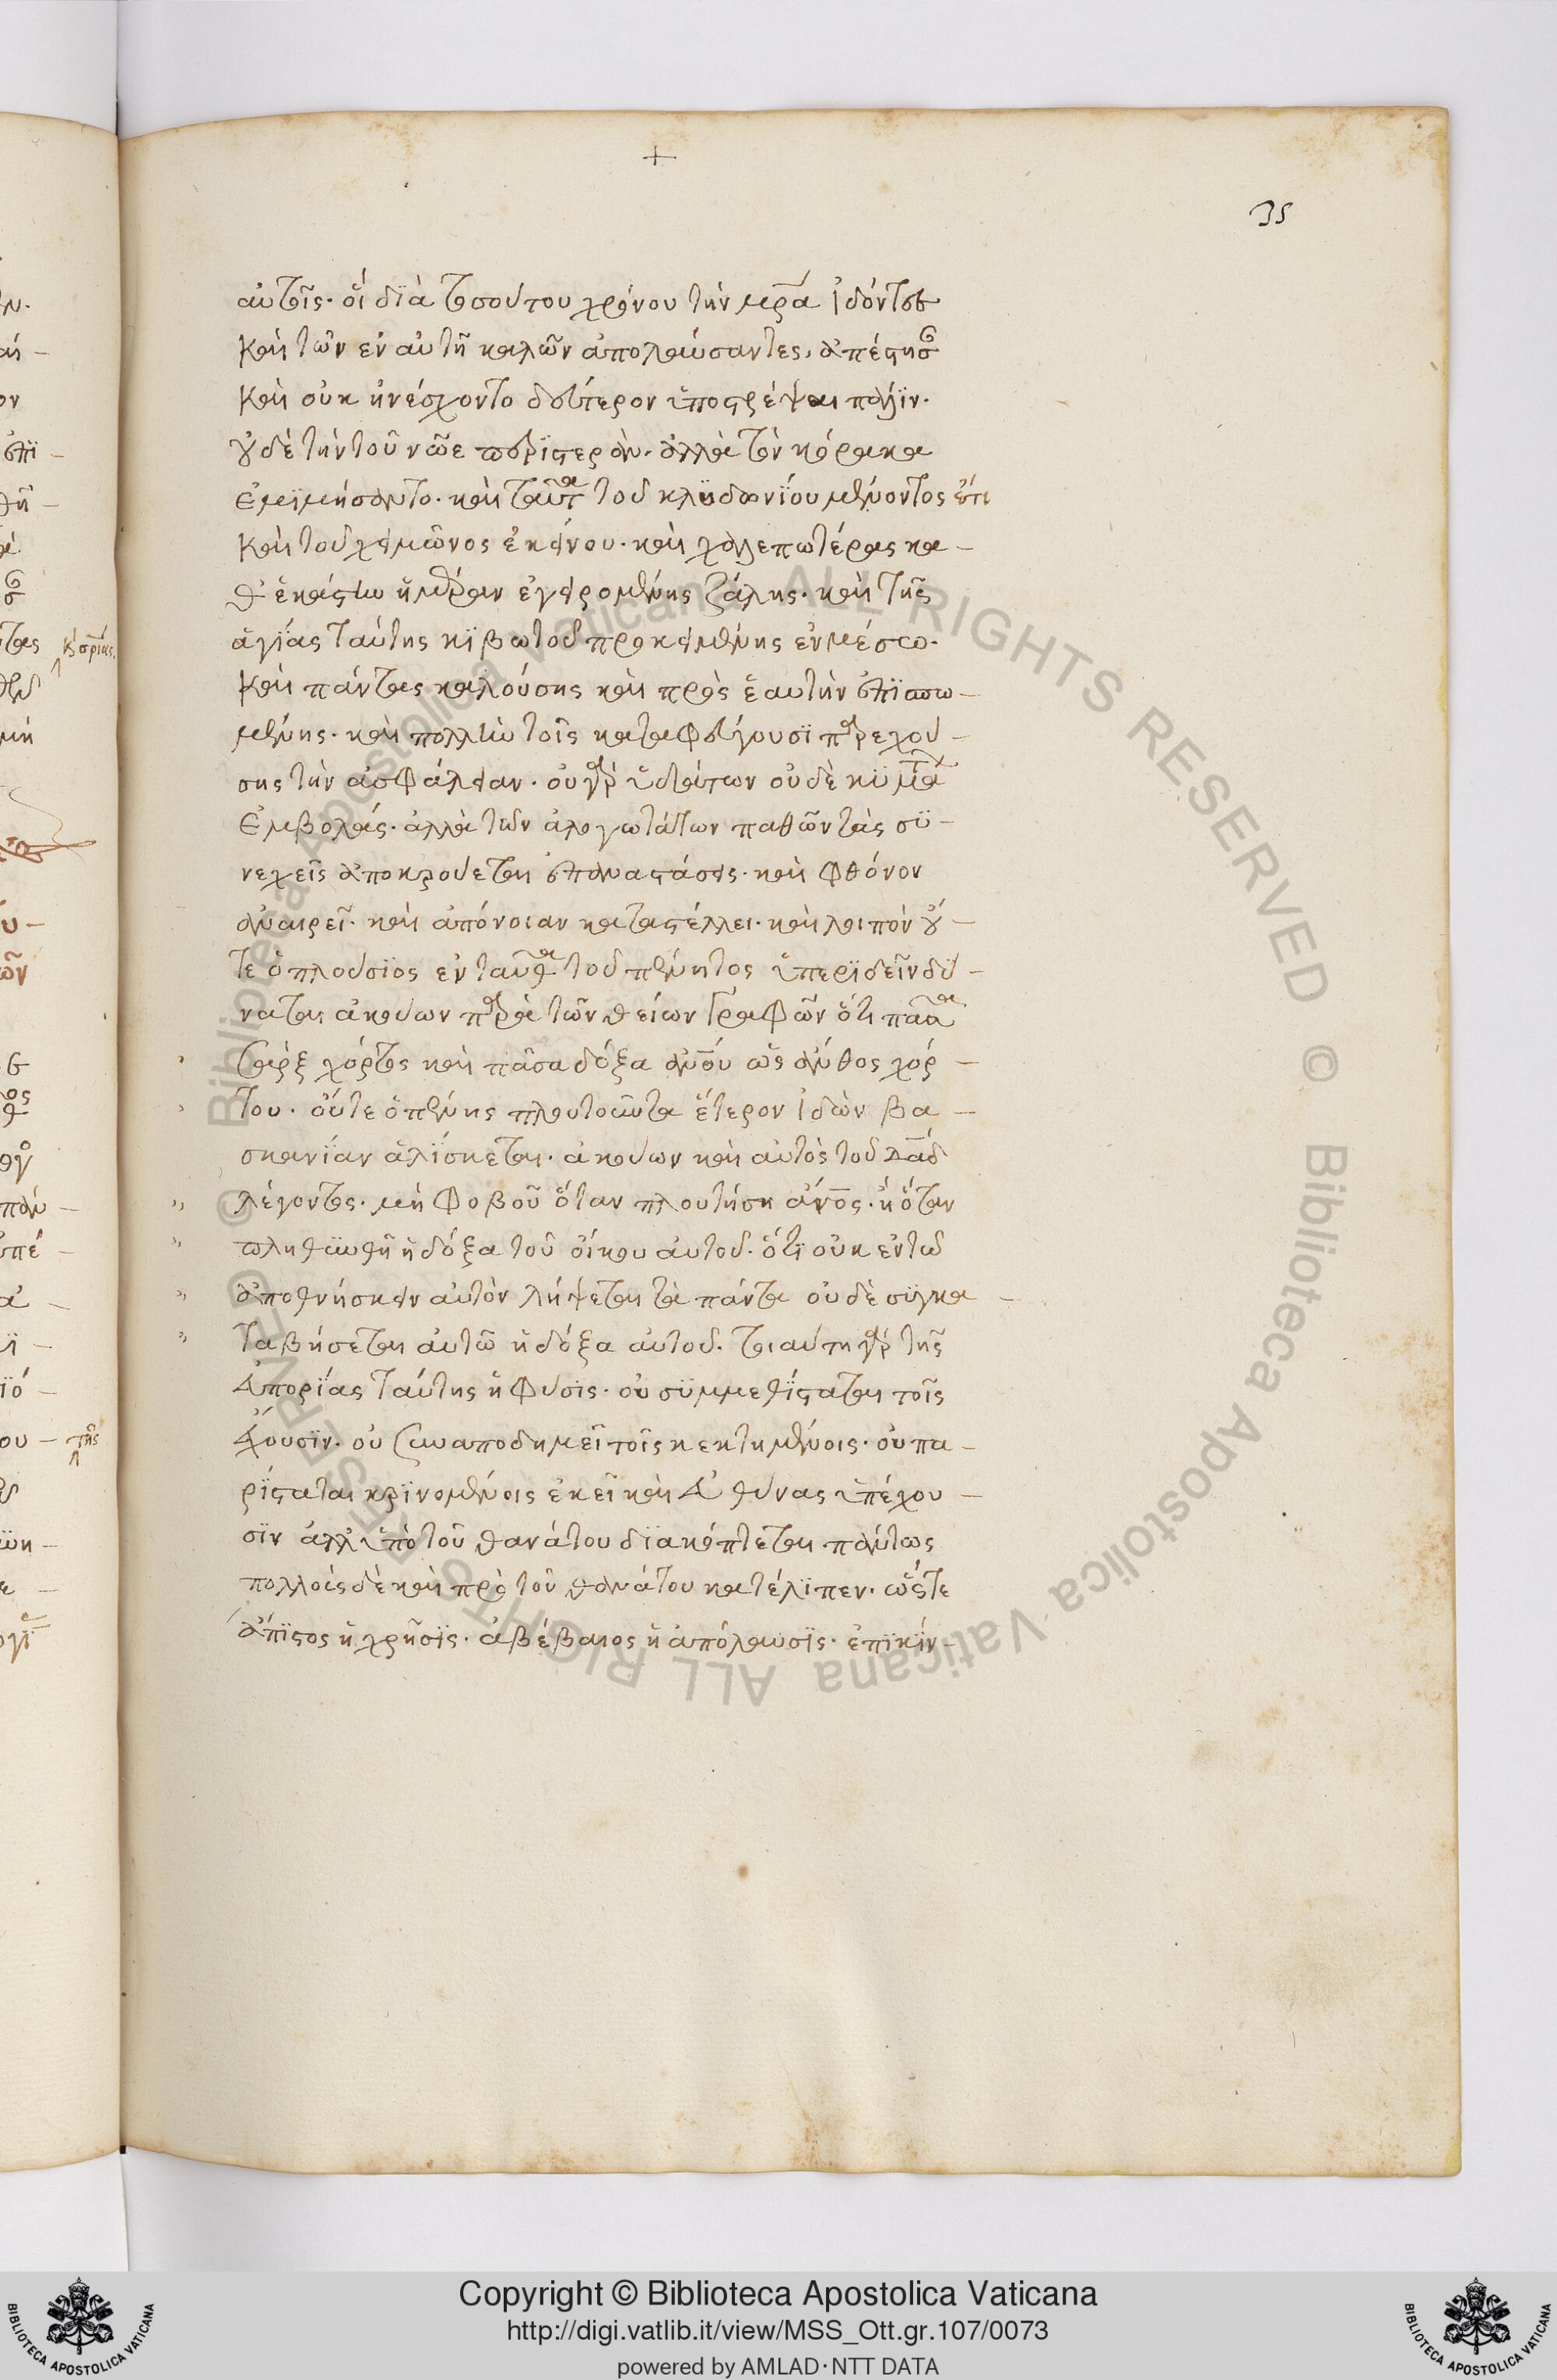 +
35
αὐτοῖς· οἳ διὰ τοσούτου χρόνου τὴν μρα ἰδόντες
καὶ τῶν ἐν αὐτῆ καλῶν ἀπολαύσαντες, ἀπέστησ
καὶ οὐκ ἠνέσχοντο δεύτερον ὑποστρέψαι πάλϊν·
οὐδὲ τὴν τοῦ νῶε περϊστεράν· ἀλλὰ τὸν κόρακα
ἐμϊμήσαντο· καὶ ταῦτα τοῦ κλϋδωνΐου μένοντος ἔτι
καὶ τοῦ χειμῶνος ἐκείνου· καὶ χαλεπωτέρας κα –
θ ἑκάστην ἡμέραν ἐγειρομένης ζάλης· καὶ τῆς
ἁγίας ταύτης κϊβωτοῦ προκειμένης ἐν μέσω·
καὶ πάντας καλούσης καὶ πρὸς ἑαυτὴν ἐπϊσπω –
μένης· καὶ πολλὴν τοῖς καταφεύγουσϊ παρεχού –
σης τὴν ἀσφάλειαν· οὐ γὰρ ὑδάτων οὐδὲ κϋμάτων
ἐμβολάς· ἀλλὰ τῶν ἀλογωτάτων παθῶν τὰς σϋ –
νεχεῖς ἀποκρούεται ἐπαναστάσεις· καὶ φθόνον
ἀναιρεῖ· καὶ ἀπόνοιαν καταστέλλει· καὶ λοιπὸν οὔ –
τε ὁ πλούσϊος ἐνταῦθα τοῦ πένητος ὑπερϊδεῖν δύ –
ναται ἀκούων παρὰ τῶν θείων γραφῶν ὅτι πᾶσα
σὰρξ χόρτος καὶ πᾶσα δόξα ἀνου ὡς ἄνθος χόρ –
του· οὔτε ὁ πένης πλουτοῦντα ἕτερον ἰδὼν βα –
σκανίαν ἁλΐσκεται· ἀκούων καὶ αὐτὸς τοῦ δαδ
λέγοντος· μὴ φοβοῦ ὅταν πλουτήση ἄνος· ἢ ὅταν
πληθϋνθῆ ἡ δόξα τοῦ οἴκου αὐτοῦ· ὅτϊ οὐκ ἐν τῶ
ἀποθνήσκειν αὐτὸν λήψεται τὰ πάντα οὐδὲ σϋγκα –
ταβήσεται αὐτῶ ἡ δόξα αὐτοῦ· τοιαύτη γὰρ τῆς
εὐπορΐας ταύτης ἡ φύσϊς· οὐ σϋμμεθΐσταται τοῖς
ἔχουσϊν· οὐ συναποδημεῖ τοῖς κεκτημένοις· οὐ πα –
ρΐσταται κρϊνομένοις ἐκεῖ καὶ εὐθύνας ὑπέχου –
σϊν ἀλλ ὑπὸ τοῦ θανάτου δϊακόπτεται πάντως
πολλοὺς δὲ καὶ πρὸ τοῦ θανάτου κατέλϊπεν· ὥστε
ἄπϊστος ἡ χρῆσϊς· ἀβέβαιος ἡ ἀπόλαυσϊς· ἐπϊκΐν –
Copyright © Biblioteca Apostolica Vaticana
http://digi.vatlib.it/view/MSS_Ott.gr.107/0073
powered by AMLAD·NTT DATA